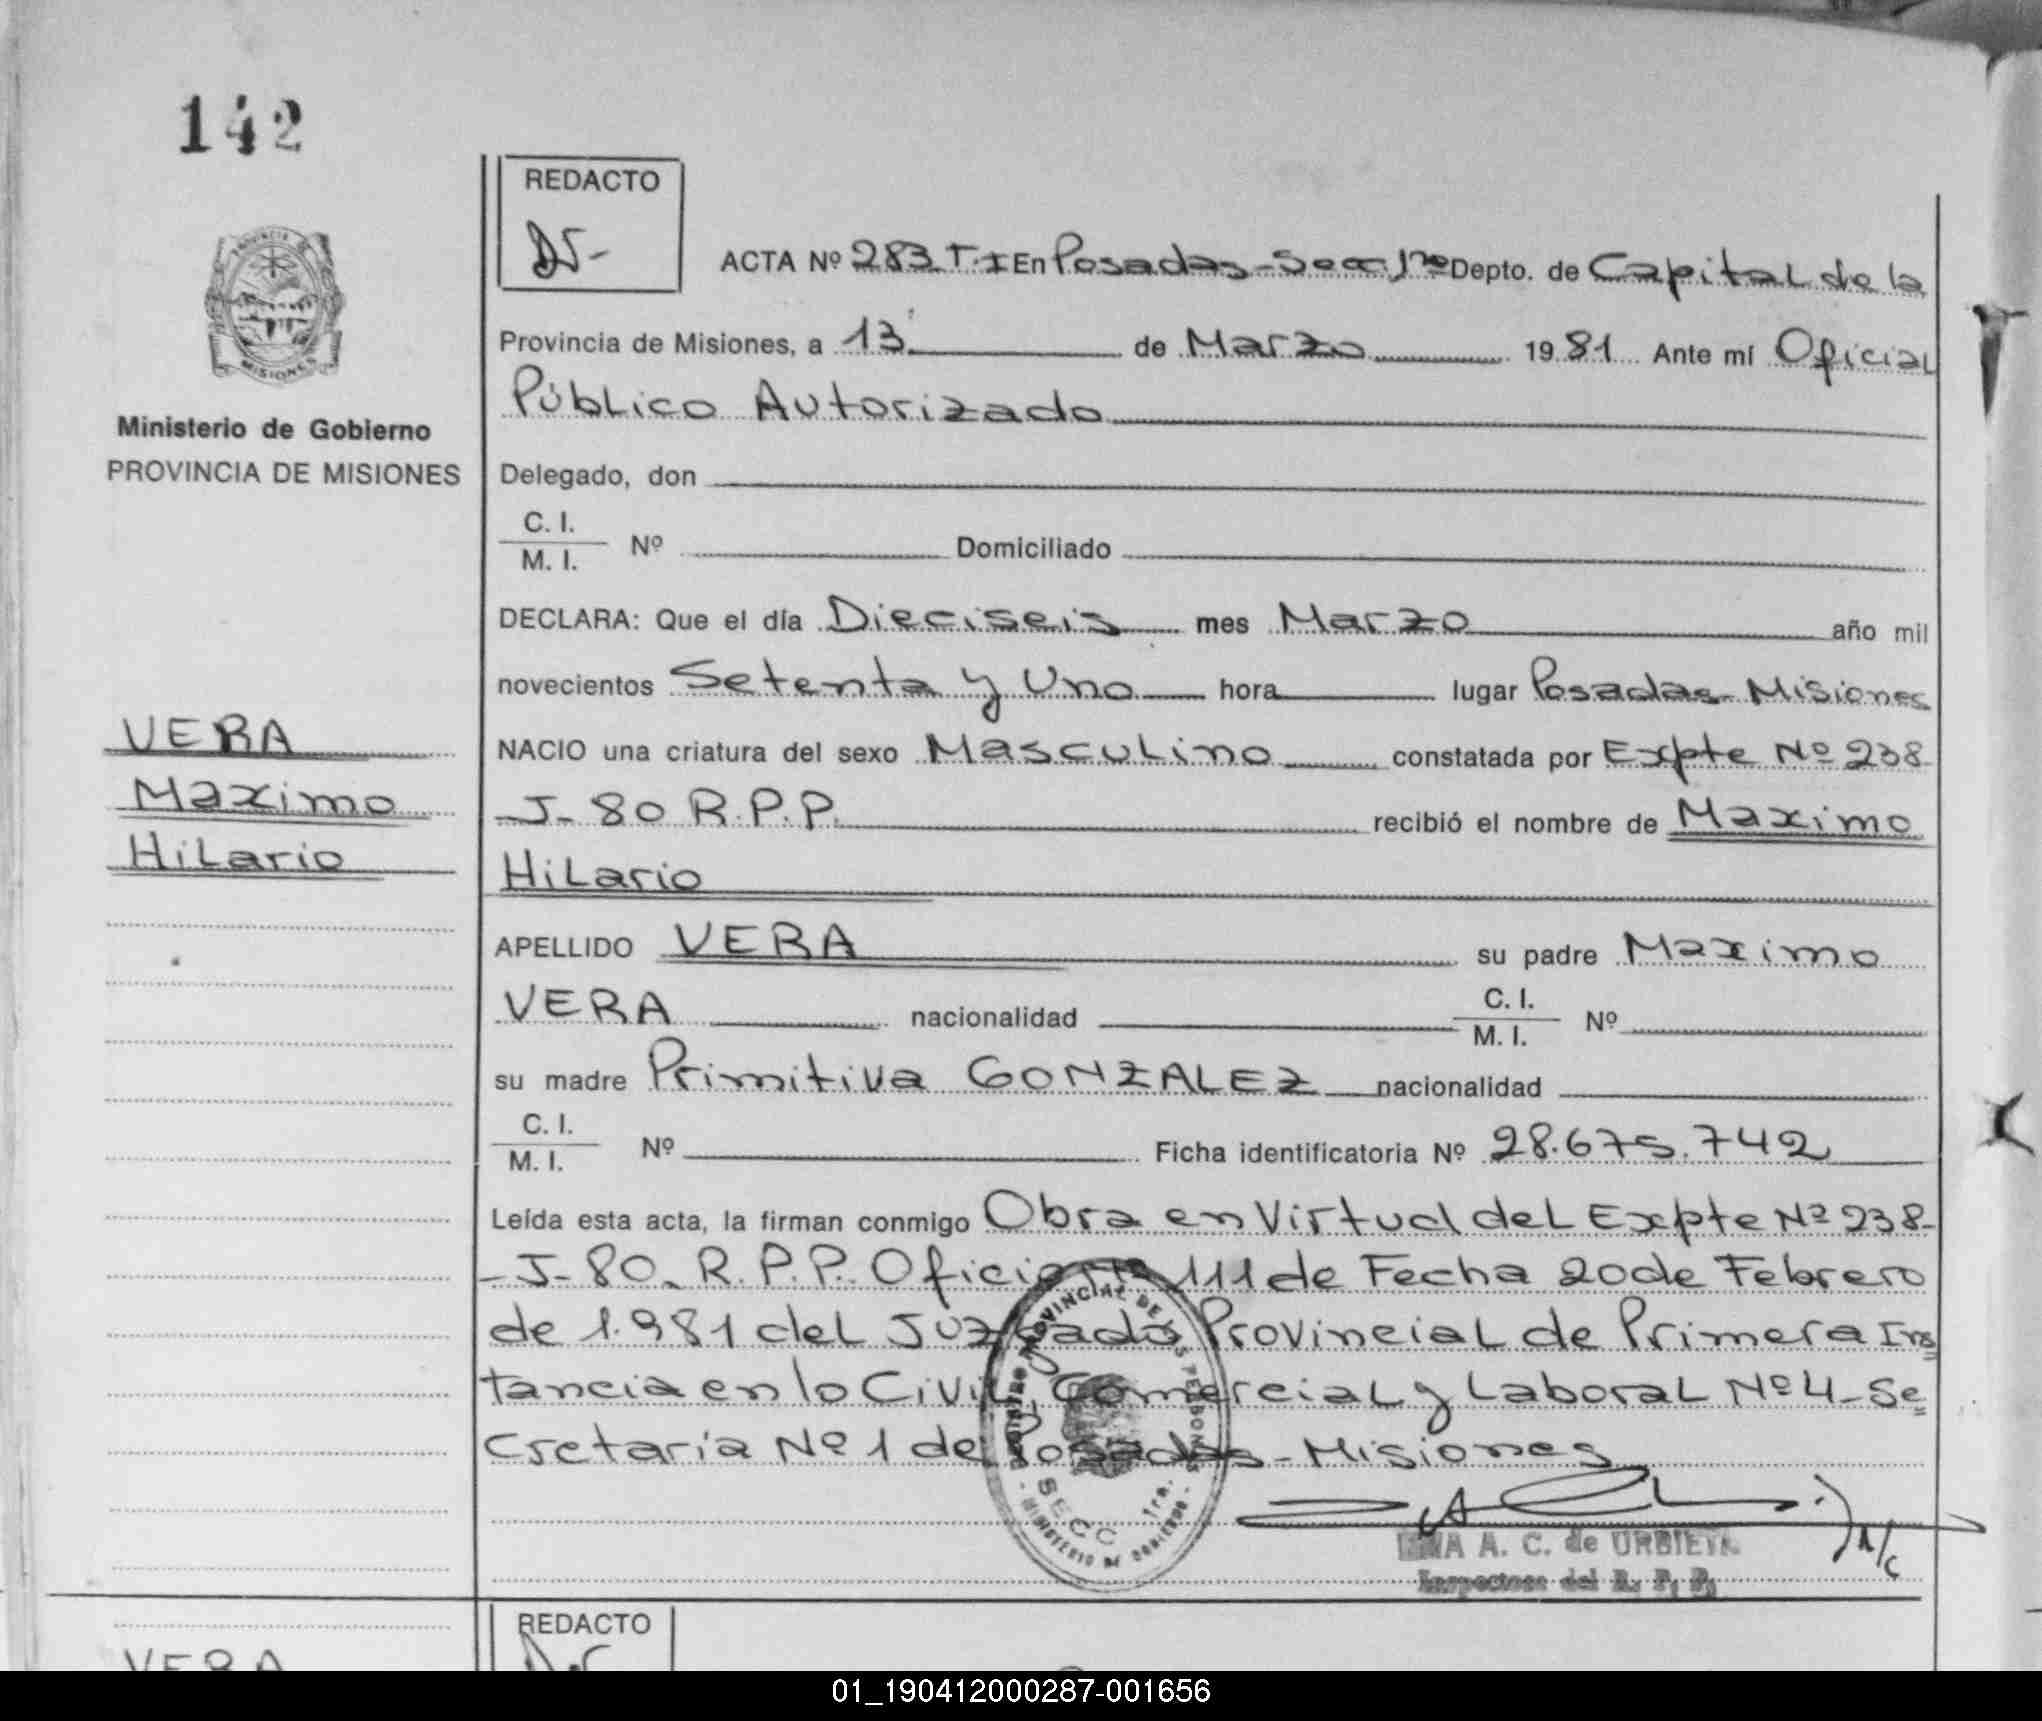 142
REDACTO
PROVINCIA DE
MISIONES
Ministerio de Gobierno
PROVINCIA DE MISIONES
VERA
Maximo
Hilario
ACTA Nº 283 T.I En Posadas - Secc 1ra Depto. de Capital de la
Provincia de Misiones, a 13 de Marzo 1981 Ante mí Oficial
Público Autorizado
Delegado, don
C. I.
M. I. Nº Domiciliado
DECLARA: Que el día Dieciseis mes Marzo año mil
novecientos Setenta y Uno hora lugar Posadas - Misiones
NACIO una criatura del sexo Masculino constatada por Expte Nº 238-
-J-80 R.P.P. recibió el nombre de Maximo
Hilario
APELLIDO VERA su padre Maximo
VERA nacionalidad C. I. M. I. Nº
su madre Primitiva GONZALEZ nacionalidad
C. I.
M. I. Nº Ficha identificatoria Nº 28.675.742
Leída esta acta, la firman conmigo Obra en Virtud del Expte Nº 238-
-J-80. R.P.P. Oficio Nº 111 de Fecha 20 de Febrero
de 1.981 del Juzgado Provincial de Primera Ins
tancia en lo Civil, Comercial y Laboral Nº 4 - Se
cretaría Nº 1 de Posadas - Misiones
REGISTRO PROVINCIAL DE LAS PERSONAS
SECC 1ra.
- MINISTERIO DE GOBIERNO -
A. C. de URBIETA
Inspectora del R. P. P.
REDACTO
VERA
01_190412000287-001656